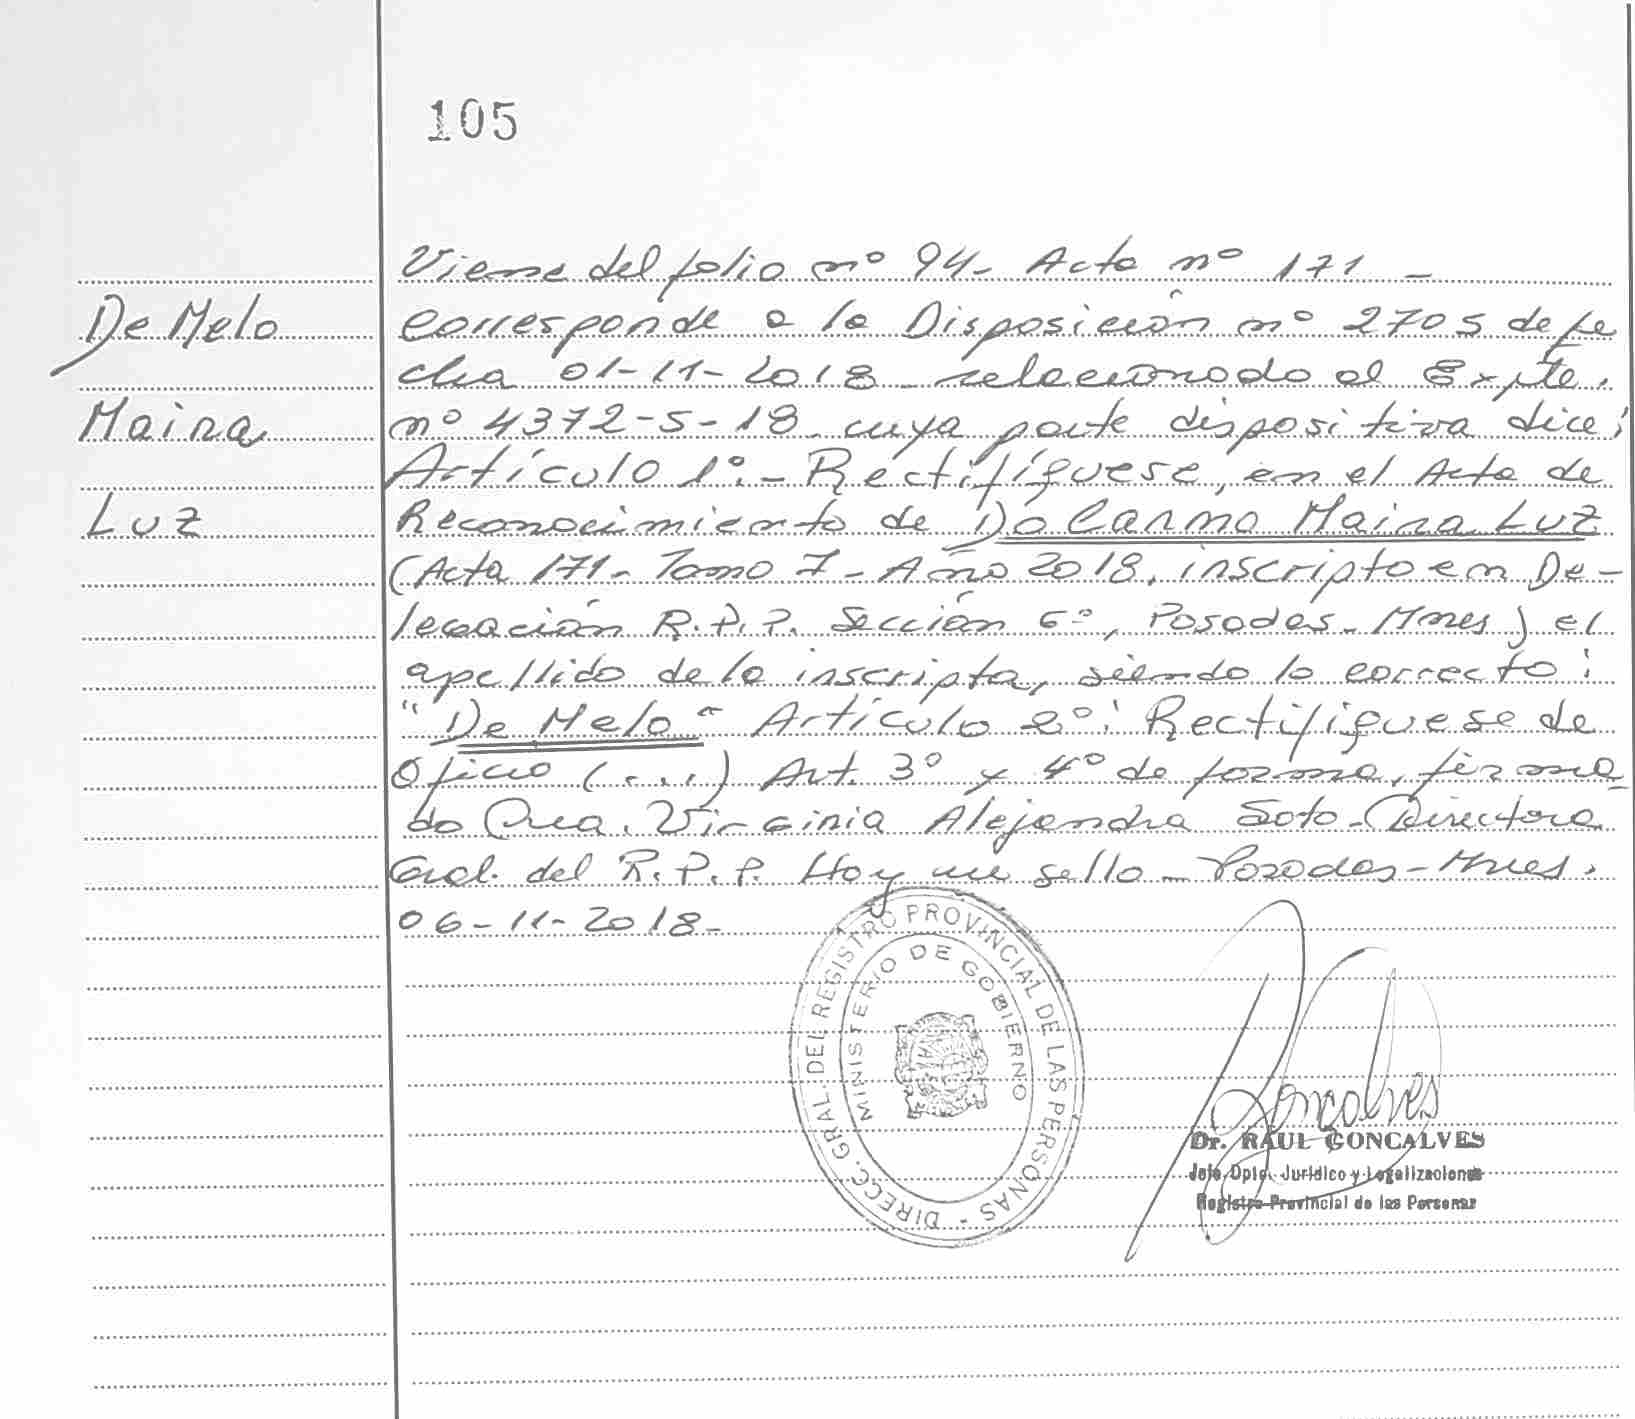 105
De Melo
Maira
Luz
Viene del folio nº 94- Acta nº 171 -
corresponde a la Disposición nº 2705 de fe
cha 01-11-2018 - relacionado al Expte.
nº 4372-S-18 - cuya parte dispositiva dice:
Artículo 1º.- Rectifíquese, en el Acta de
Reconocimiento de Do Carmo Maira Luz
(Acta 171- Tomo 7 - Año 2018, inscripto en De-
legación R.P.P. Sección 6º, Posadas - Mnes) el
apellido de la inscripta, siendo lo correcto:
"De Melo" Artículo 2º: Rectifíquese de
Oficio (...) Art. 3º y 4º de forma, firma-
do Virginia Alejandra Soto - Directora
Gral. del R.P.P. Hay un sello - Posadas - Mnes.
06-11-2018-
DIRECC. GRAL. DEL REGISTRO PROVINCIAL DE LAS PERSONAS -
MINISTERIO DE GOBIERNO
Gonçalves
Dr. RAUL GONCALVES
Jefe Dpto. Jurídico y Legalizaciones
Registro Provincial de las Personas